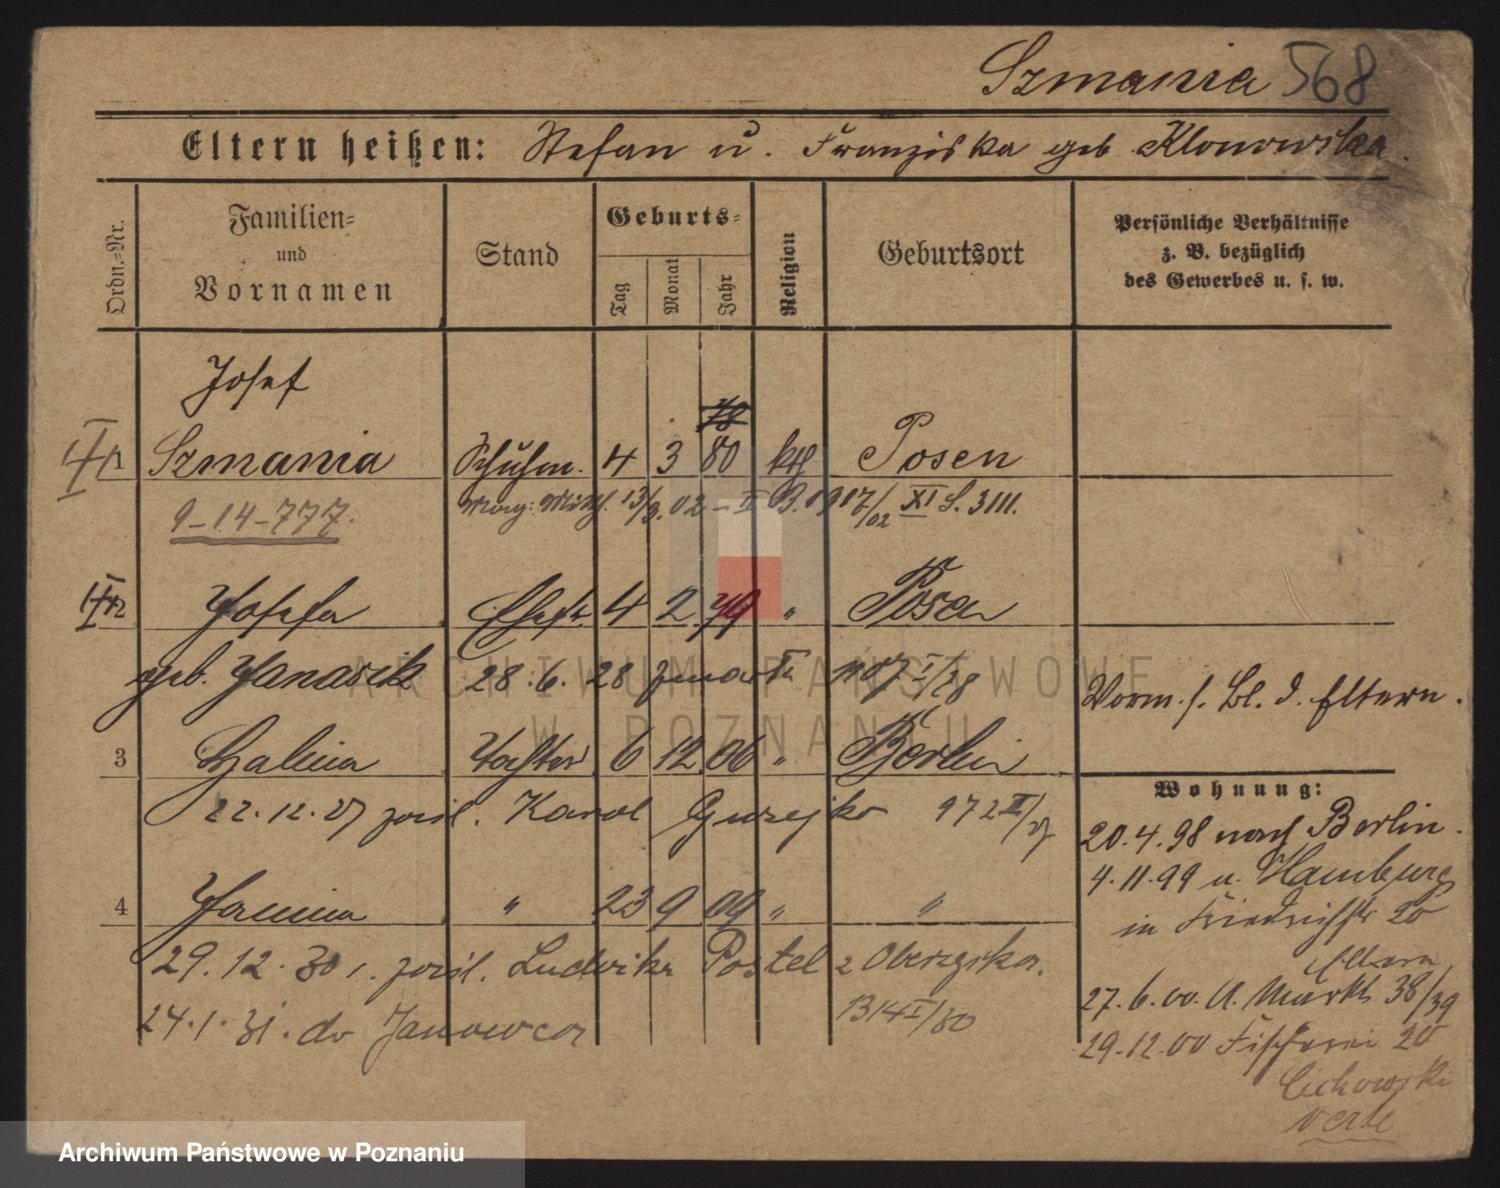 Szmania 568
Eltern heißen: Stefan u. Franziska geb Klonowska.
Ordn.-Nr.
Familien-
und
Vornamen
Stand
Geburts-
Tag
Monat
Jahr
Religion
Geburtsort
Persönliche Verhältnisse
z. B. bezüglich
des Gewerbes u. s. w.
Josef
78
1 Szmania Schuhm. 4 3 80 kth Posen
9-14-777.
13/9. 02 - II B. 1917/02 XI S. 3111.
2 Josefa Ehefr. 4 2 79 " Posen
geb. Janasik 28.6.28 zmarła 1107 I/28
Vorm. s. Bl. d. Eltern.
3 Halina Tochter 6 12 06 " Berlin
22.12.27 zaśl. Karol 972 II/27
4 Janina " 23 9 09 " "
29.12.30 r. zaśl. Ludwika Postel z Oberzyska.
24.1.31. do Janowca 1314 I/30
Wohnung:
20.4.98 nach Berlin.
4.11.99 u. Hamburg
in Friedrichstr 20
Eltern
27.6.00. A. Markt 38/39
29.12.00 Fischerei 20
Cichowski
ARCHIWUM PAŃSTWOWE
W POZNANIU
Archiwum Państwowe w Poznaniu